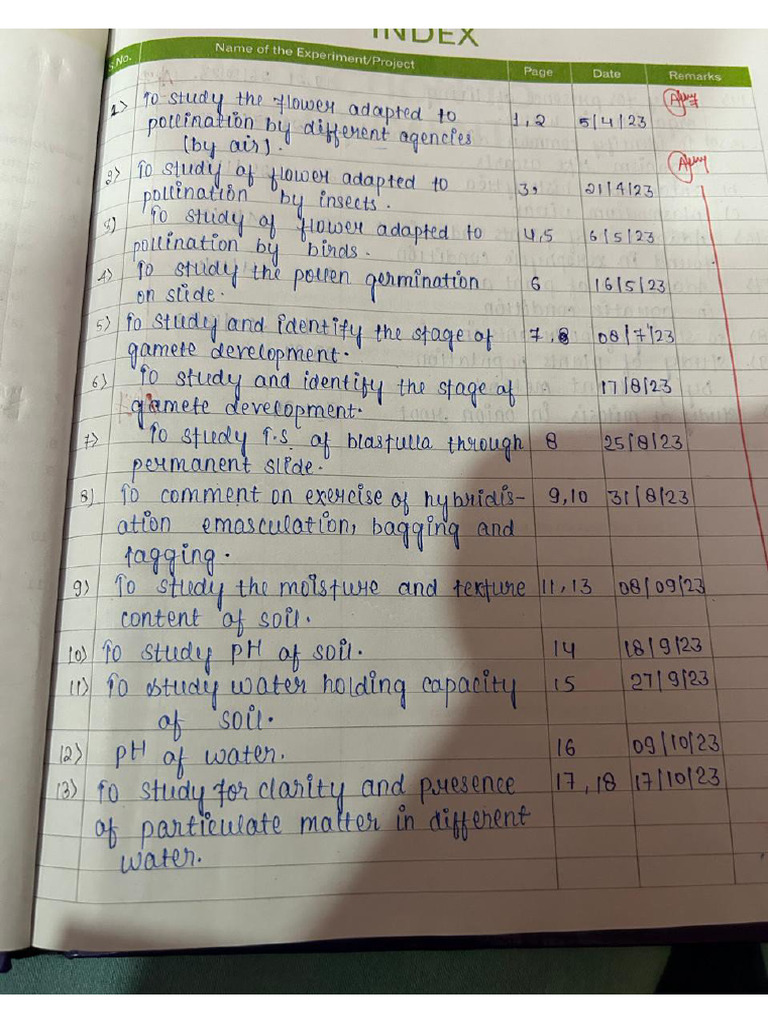 INDEX
S.No. Name of the Experiment/Project Page Date Remarks
1) To study the flower adapted to
pollination by different agencies 1,2 5/4/23
(by air).
2) To study of flower adapted to
pollination by insects. 3, 21/4/23
3) To study of flower adapted to 4,5 6/5/23
pollination by birds.
4) To study the pollen germination 6 16/5/23
on slide.
5) To study and identify the stage of 7,8 08/7/23
gamete development.
6) To study and identify the stage of 17/8/23
gamete development.
7) To study T.S. of blastulla through 8 25/8/23
permanent slide.
8) To comment on exercise of hybridis- 9,10 31/8/23
ation emasculation, bagging and
tagging.
9) To study the moisture and texture 11,13 08/09/23
content of soil.
10) To study PH of soil. 14 18/9/23
11) To study water holding capacity 15 27/9/23
of soil.
12) PH of water. 16 09/10/23
13) To study for clarity and presence 17,18 17/10/23
of particulate matter in different
water.